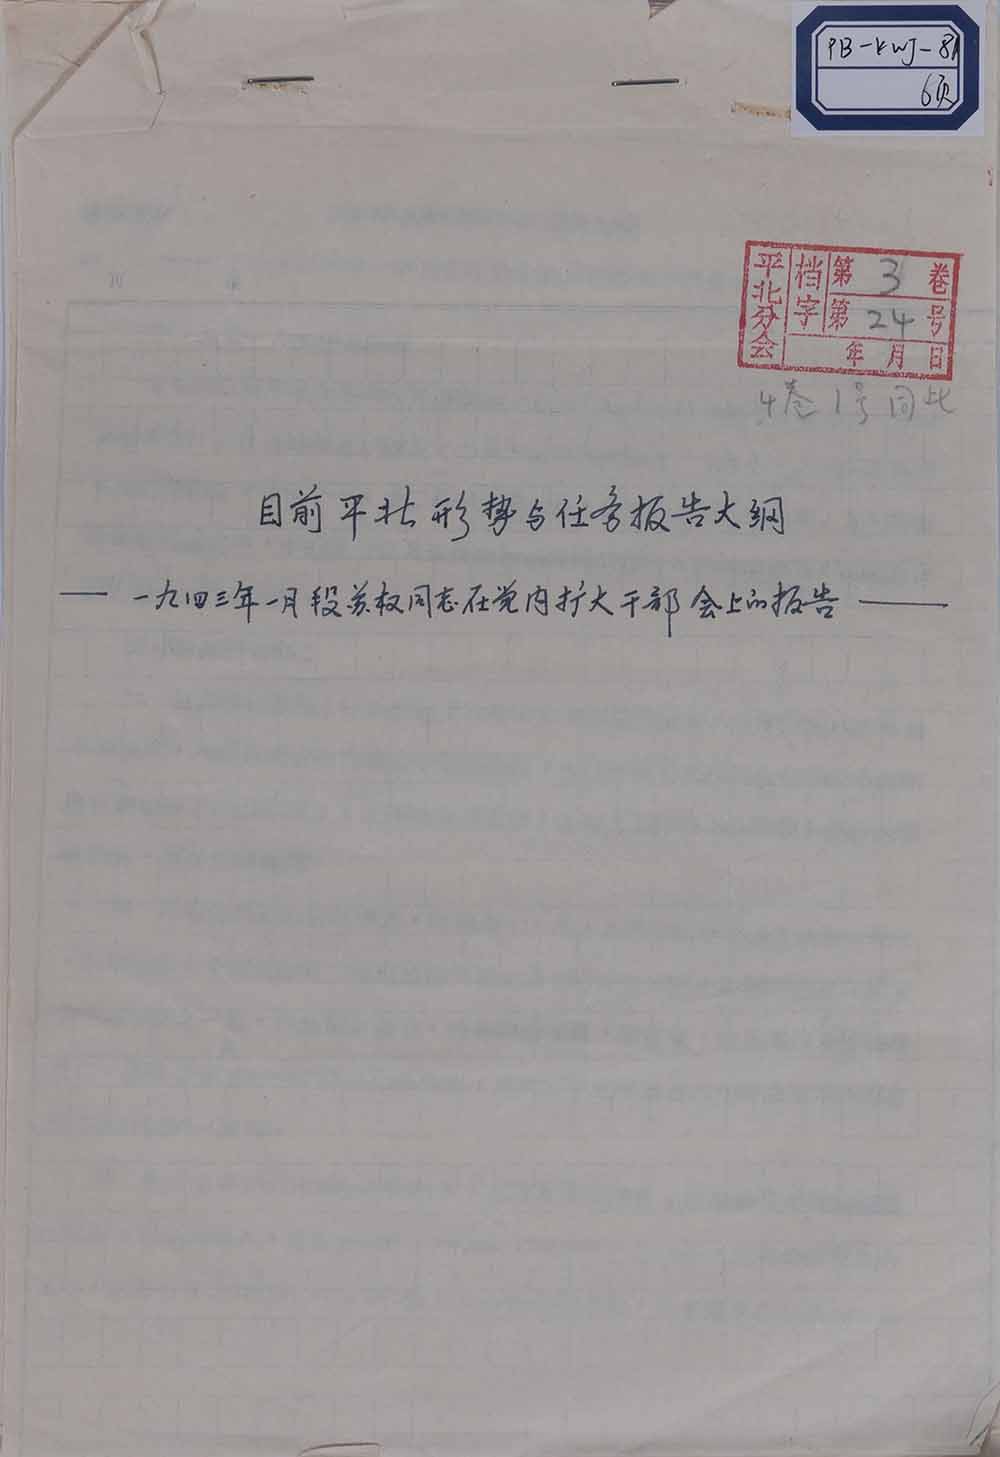 PB-KWJ-81
6页
平北分会
档字
第3卷
第24号
年月日
4卷1号同此
目前平北形势与任务报告大纲
——一九四三年一月段苏权同志在党内扩大干部会上的报告——